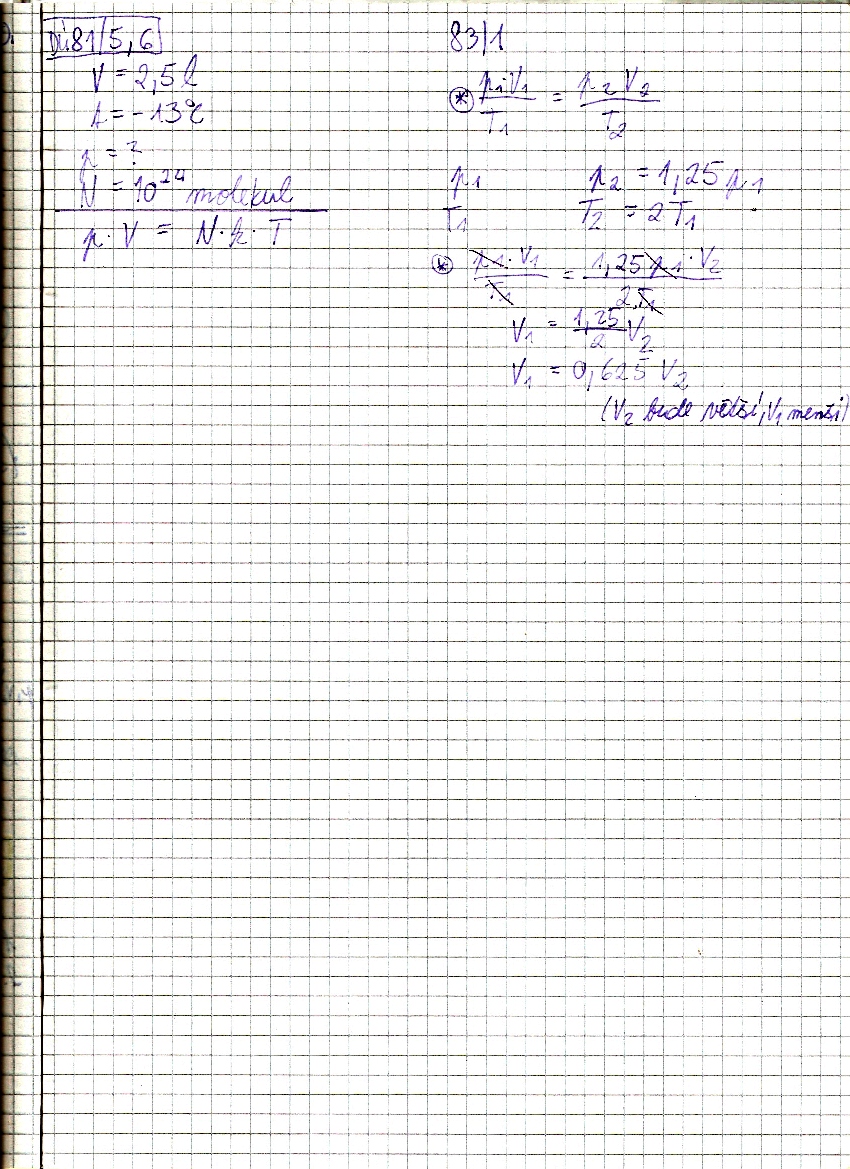 DÚ: 81/5,6
V = 2,5 l
t = -13°C
p = ?
N = 10²⁴ molekul
p · V = N · k · T
83/1
⊛ p₁V₁/T₁ = p₂V₂/T₂
p₁ p₂ = 1,25 p₁
T₁ T₂ = 2T₁
⊛ p₁·V₁/T₁ = 1,25 p₁·V₂/2·T₁
V₁ = 1,25/2 V₂
V₁ = 0,625 V₂
(V₂ bude větší, V₁ menší)